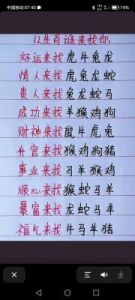 中国移动 07:40
12生肖谁来找你
好运来找 虎牛兔龙
情人来找 龙兔蛇
贵人来找 兔龙蛇
成功来找 羊猴鸡狗
财神来找 鼠牛虎兔
升官来找 猴鸡狗猪
事业来找 马羊猴鸡
顺心来找 猴蛇马羊
暴富来找 龙蛇马羊
福气来找 牛马羊猪